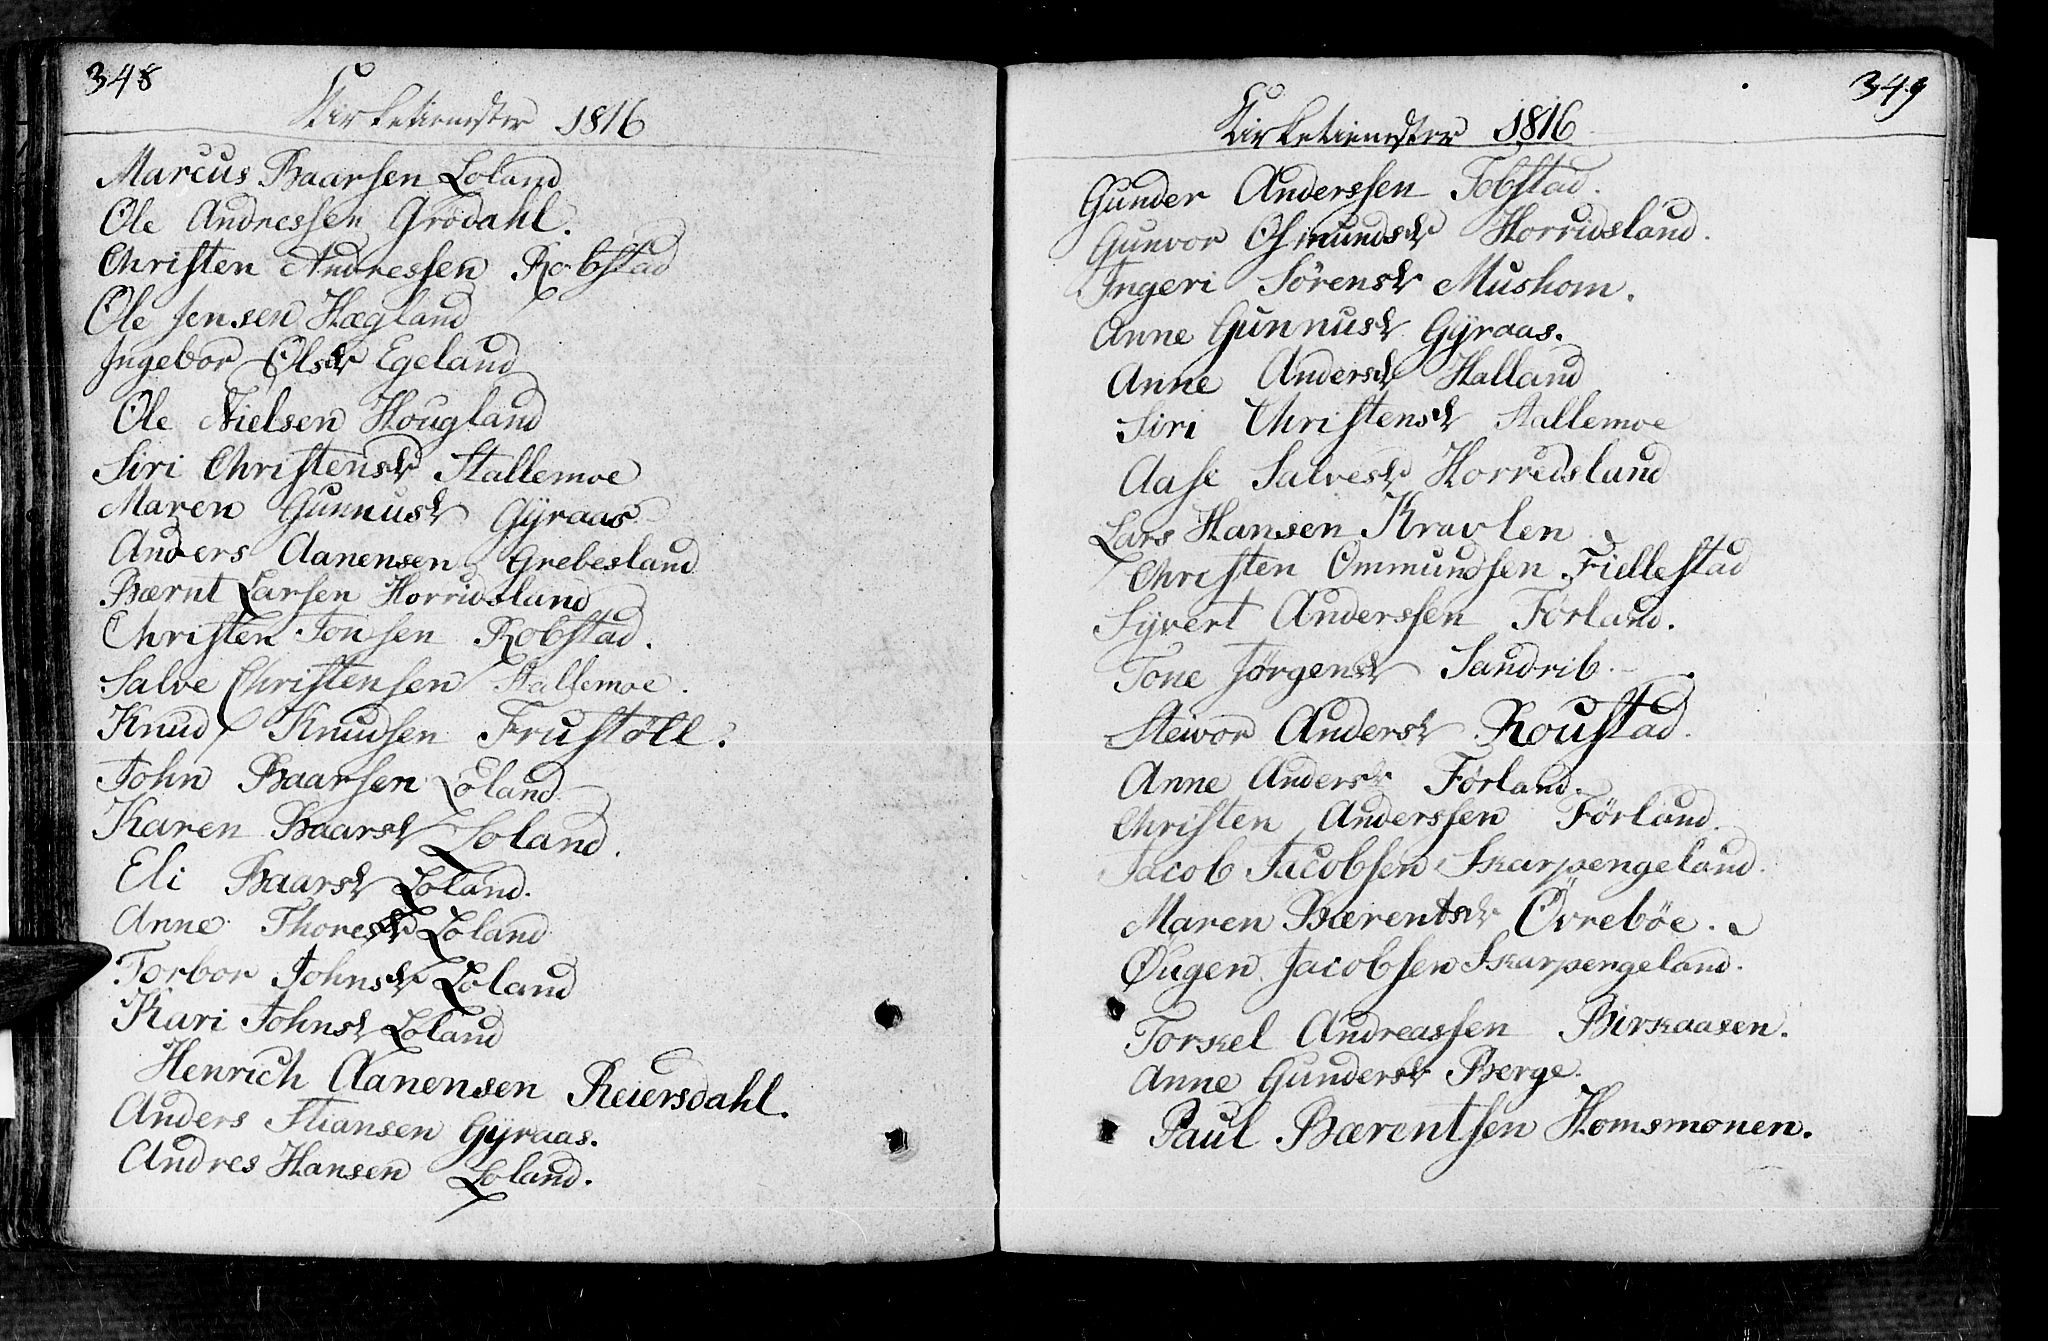 348
Kirketienester 1816
Marcus Baarsen Loland
Ole Andressen Grödahl.
Christen Andressen Robstad
Ole Jensen Hægland
Ingebor Olsdr Egeland
Ole Nielsen Hougland
Siri Christensdr Stallemoe
Maren Gunnusdr Gÿraas
Anders Aanensen Grebesland
Bærnt Larsen Horridsland
Christen Jonsen Robstad.
Salve Christensen Stallemoe.
Knud Knudsen Frustöll.
John Baarsen Loland
Karen Baarsdr Loland.
Eli Baarsdr Loland.
Anne Thoresdr Loland
Torbor Johnsdr Loland
Kari Johnsdr Loland
Henrich Aanensen Reiersdahl.
Anders Stiansen Gÿraas.
Andres Hansen Loland.
349
Kirketienester 1816
Gunder Anderssen Tobstad.
Gunvor Osmundsdr Horridsland.
Ingeri Sörensdr Mushom.
Anne Gunnusdr Gÿraas.
Anne Andersdr Halland
Siri Christensdr Stallemoe
Aase Salvesdr Horridsland
Lars Hansen Kravlen
Christen Ommundsen Fiellestad
Sÿvert Anderssen Förland.
Tone Jörgensdr Sandrib.
Steivor Andersdr Roustad.
Anne Andersdr Förland.
Christen Anderssen Förland.
Jacob Jacobsen Skarpengeland.
Maren Bærentsdr Övreböe.
Øugen Jacobsen Skarpengeland.
Torkel Andreassen Birkaasen.
Anne Gundersdr Berge.
Paul Bærentsen Homsmonen.